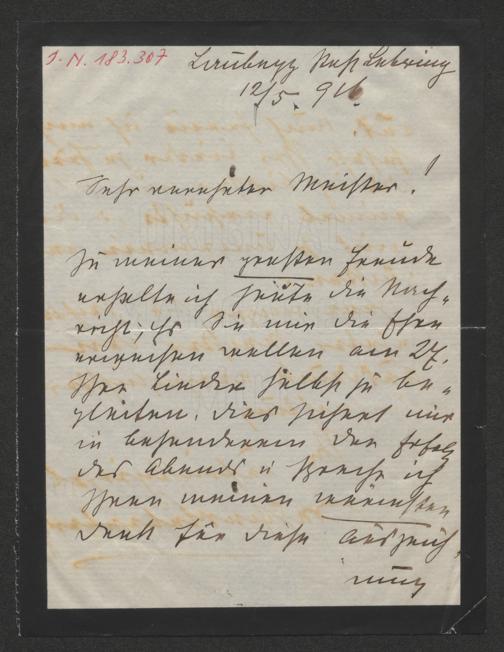 I. N. 183.307
Laubegg Post Lebring
12/5. 916.
Sehr verehrter Meister!
Zu meiner grossten Freude
erhalte ich heute die Nach-
richt, dß Sie mir die Ehre
erweisen wollen am 27.
Ihre Lieder selbst zu be-
gleiten. Dies sichert mir
in besonderem den Erfolg
des Abends u spreche ich
Ihnen meinen wärmsten
Dank für diese Auszeich-
nung